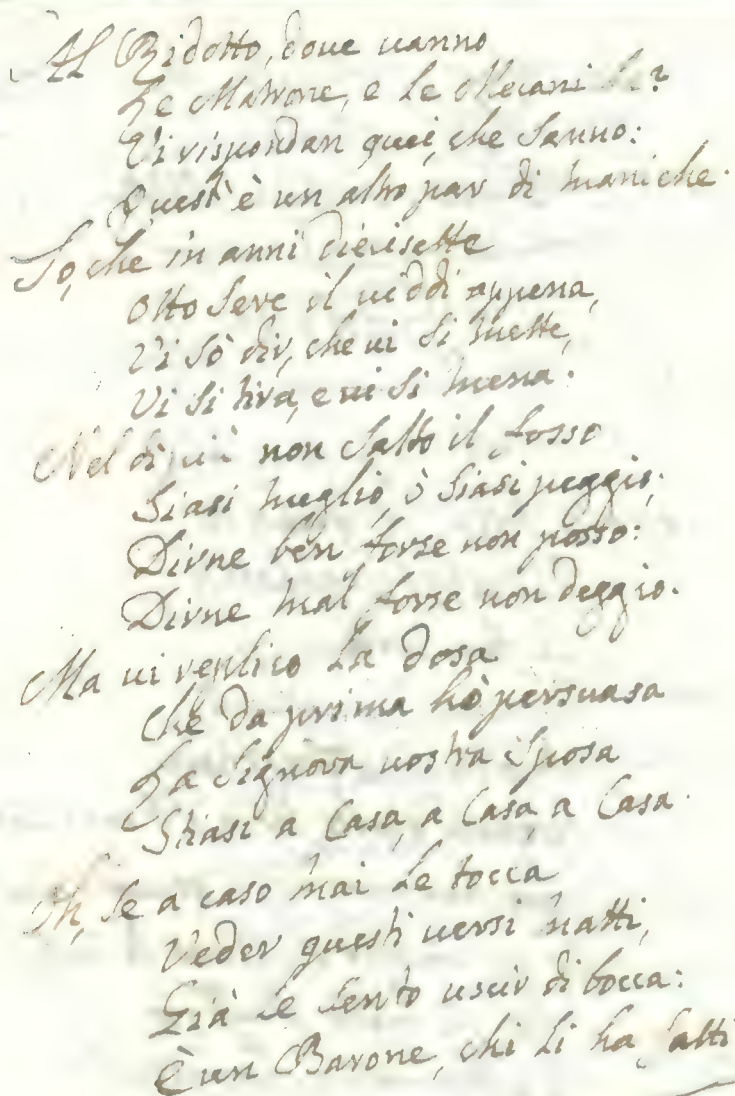 Al Ridotto, doue uanno
Le Matrone, e le Mecaniche?
Vi rispondan quei, che sanno:
Quest' è un altro par di maniche.
So, che in anni diecisette
Otto sere il uiddi appena,
Vi sò dir, che ui si mette,
Vi si tira, e ui si mena.
Nel di più non salto il fosso
Siasi meglio, ò siasi peggio;
Dirne ben forse non posso:
Dirne mal forse non deggio.
Ma ui replico la dosa
Che da prima hò persuasa
La Signora uostra Sposa
Stiasi a Casa, a Casa, a Casa.
Oh, se a caso mai le tocca
Veder questi uersi matti,
Già le sento uscir di bocca:
È un Barone, chi li ha fatti